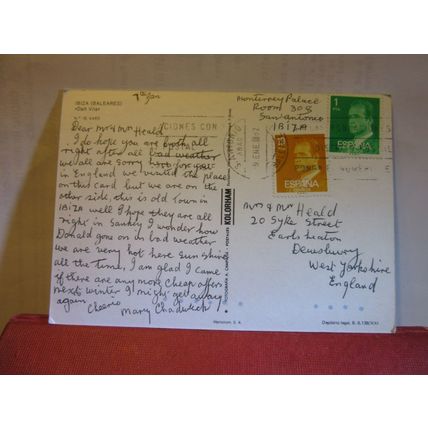 IBIZA (BALEARES)
7th Jan
Dear Mr & Mrs Heald
I do hope you are both all
right after all bad weather
we all are sorry here for you
in England we visited the place
on this card but we are on the
other side, this is old town in
IBIZA well I hope they are all
right in I wonder how
Donald gone on in bad weather
we are very hot here sun shines
all the time, I am glad I came
if there are any more cheap offers
next winter I might get away
again Cheerio
Mary Chadwick
Monterrey Palace
Room 308
San Antonio
IBIZA
CIONES CON
9 ENE
1
PTA
ESPAÑA
ESPAÑA
Mr & Mrs Heald
20 Syke Street
Earlsheaton
Dewsbury
West Yorkshire
England
KOLORHAM